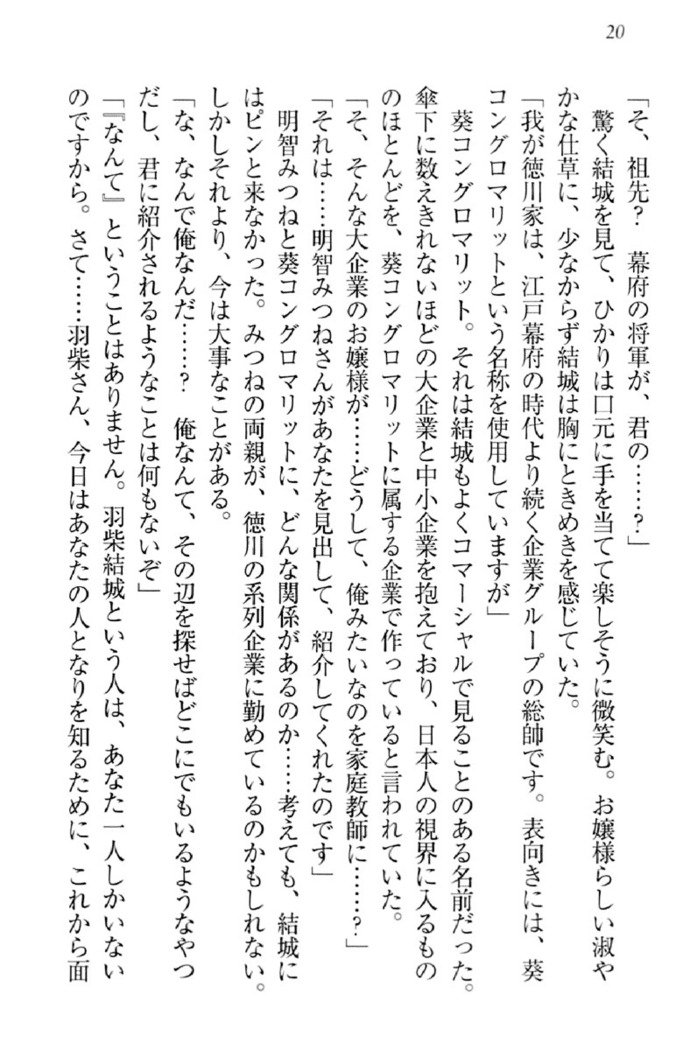 20
「そ、祖先？　幕府の将軍が、君の……？」
　驚く結城を見て、ひかりは口元に手を当てて楽しそうに微笑む。お嬢様らしい淑や
かな仕草に、少なからず結城は胸にときめきを感じていた。
「我が徳川家は、江戸幕府の時代より続く企業グループの総師です。表向きには、葵
コングロマリットという名称を使用していますが」
　葵コングロマリット。それは結城もよくコマーシャルで見ることのある名前だった。
傘下に数えきれないほどの大企業と中小企業を抱えており、日本人の視界に入るもの
のほとんどを、葵コングロマリットに属する企業で作っていると言われていた。
「そ、そんな大企業のお嬢様が……どうして、俺みたいなのを家庭教師に……？」
「それは……明智みつねさんがあなたを見出して、紹介してくれたのです」
　明智みつねと葵コングロマリットに、どんな関係があるのか……考えても、結城に
はピンと来なかった。みつねの両親が、徳川の系列企業に勤めているのかもしれない。
しかしそれより、今は大事なことがある。
「な、なんで俺なんだ……？　俺なんて、その辺を探せばどこにでもいるようなやつ
だし、君に紹介されるようなことは何もないぞ」
「『なんて』ということはありません。羽柴結城という人は、あなた一人しかいない
のですから。さて……羽柴さん、今日はあなたの人となりを知るために、これから面